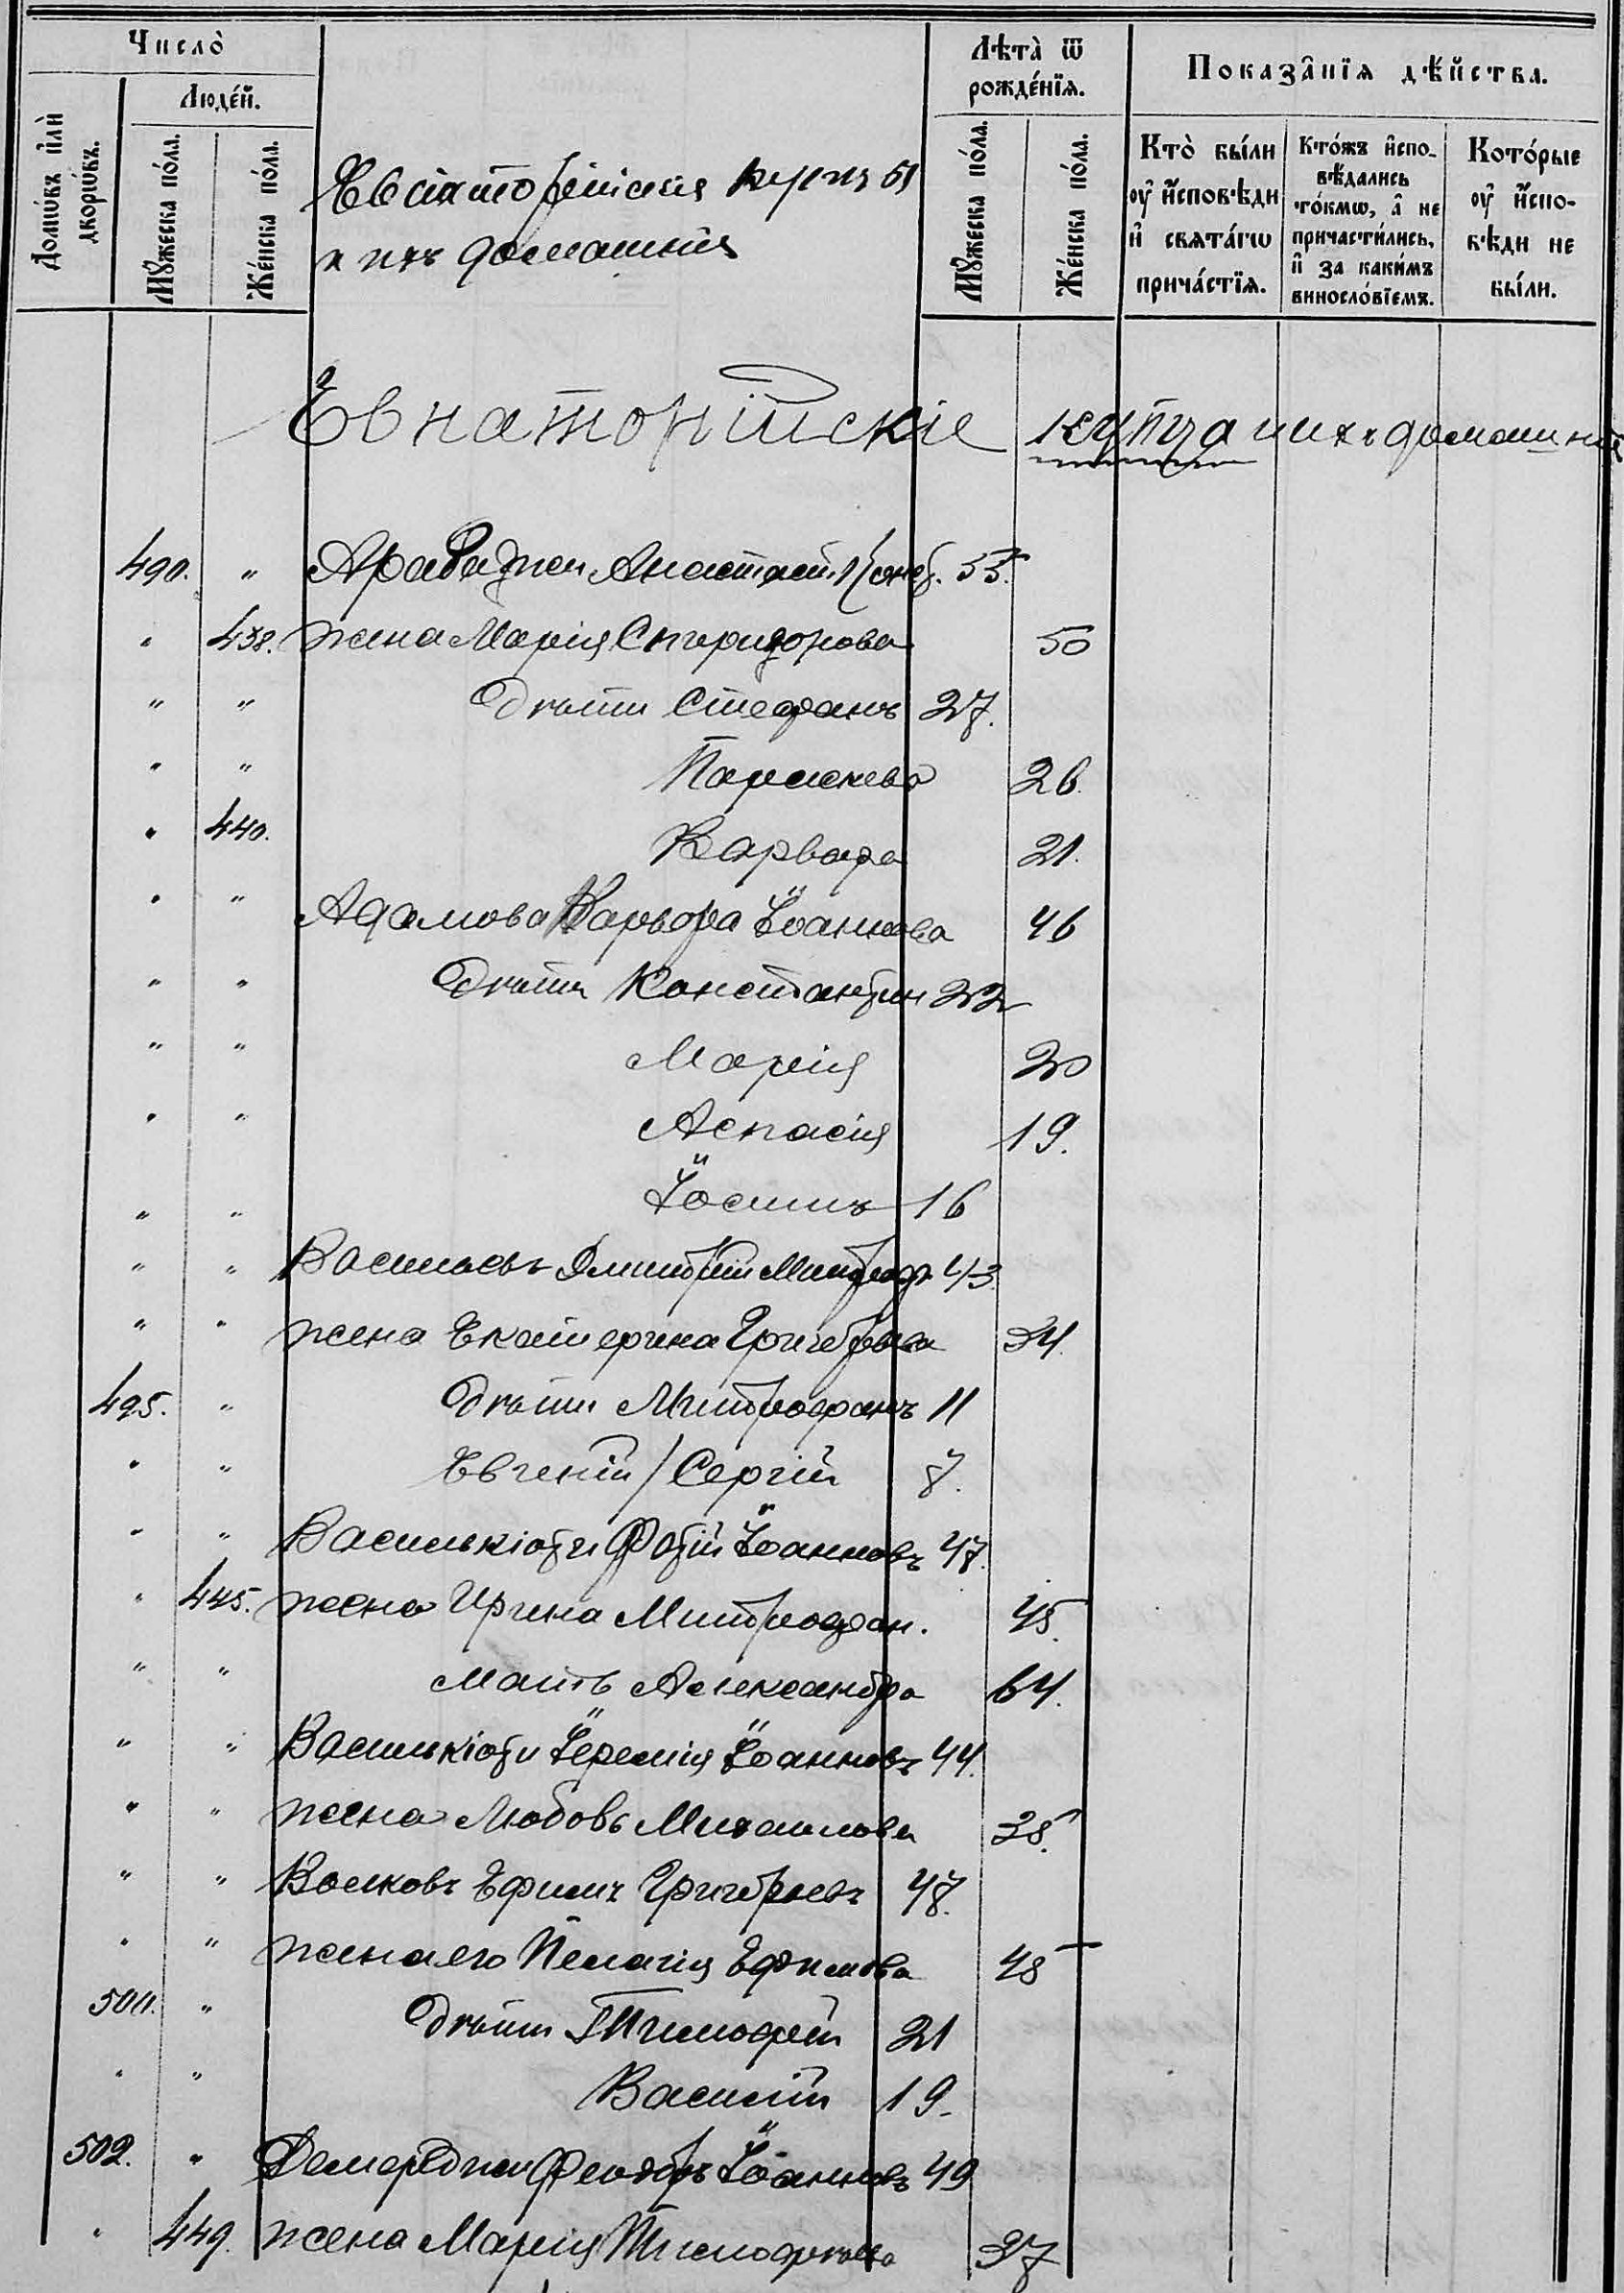 Число̀
Людéй.
Домѡ́въ и҆лѝ дворѡ́въ.
Мꙋ́жеска пóла.
Жéнска пóла.
Евпаторійскія купцы
и ихъ домашнія
Лѣта̀ ѿ рождéнїѧ.
Мꙋ́жеска пóла.
Жéнска пóла.
Показа̑нїѧ дѣ́йства.
Кто̀ бы́ли ᲂу҆ и҆́сповѣди и҆ свѧта́гѡ прича́стїѧ.
Кто́жъ и҆спо-вѣ́дались то́кмѡ, а҆ не причасти́лись, и҆ за каки́мъ винослóвїемъ.
Котóрые ᲂу҆ и҆́спо-вѣди не бы́ли.
Евпаторійскіе купцы и ихъ домашніе
490. " Арабаджи Анастасій Конст. 55.
" 438. жена Марія Спиридонова 50
" " Дѣти Стефанъ 27.
" " Параскева 26.
" 440. Варвара 21.
" " Адамова Варвара Іоаннова 46
" " Дѣти Константин 22
" " Марія 20
" " Аспасія 19.
" " Іосифъ 16
" " Васильевъ Димитрій Митроф. 43.
" " жена Екатерина Григорьева 34.
495. " Дѣти Митрофанъ 11
" " Евгеній / Сергій 7.
" " Василькіоти Фотій Іоанновъ 47.
" 445. жена Ирина Митрофан. 45.
" " мать Александра 64.
" " Василькіоти Іеремія Іоанновъ 44.
" " жена Любовь Михаилова 38.
" " Волковъ Ефимъ Григорьевъ 47.
" " жена его Пелагія Ефимова 45
500. " Дѣти Тимофей 21
" " Василій 19.
502. " Демерджи Феодоръ Іоанновъ 49
" 449. жена Марія Тимофеева 37